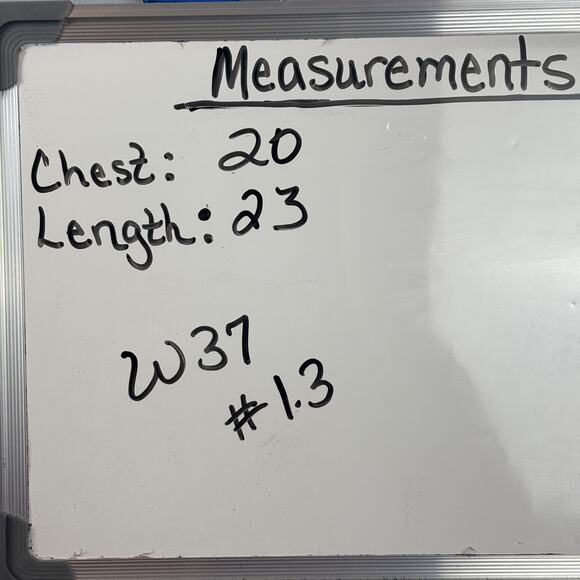 Measurements
Chest: 20
Length: 23
W37
#1.3